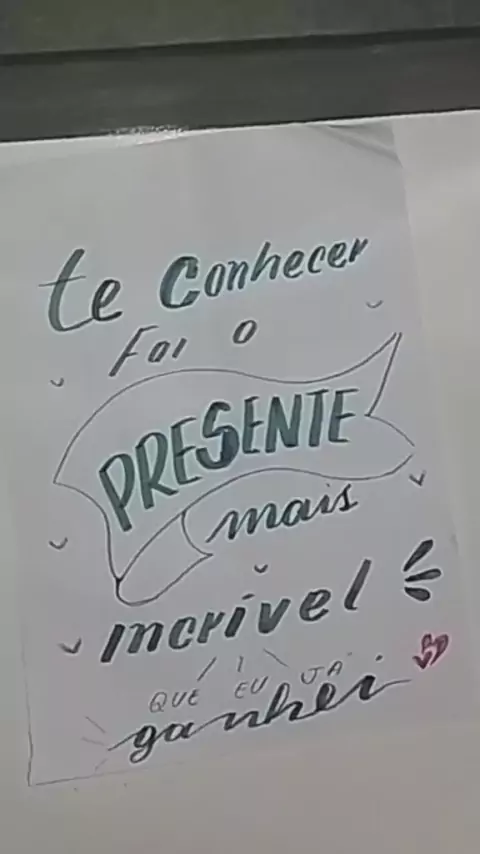 te Conhecer
Foi o
PRESENTE
mais
incrível
QUE EU JÁ
ganhei